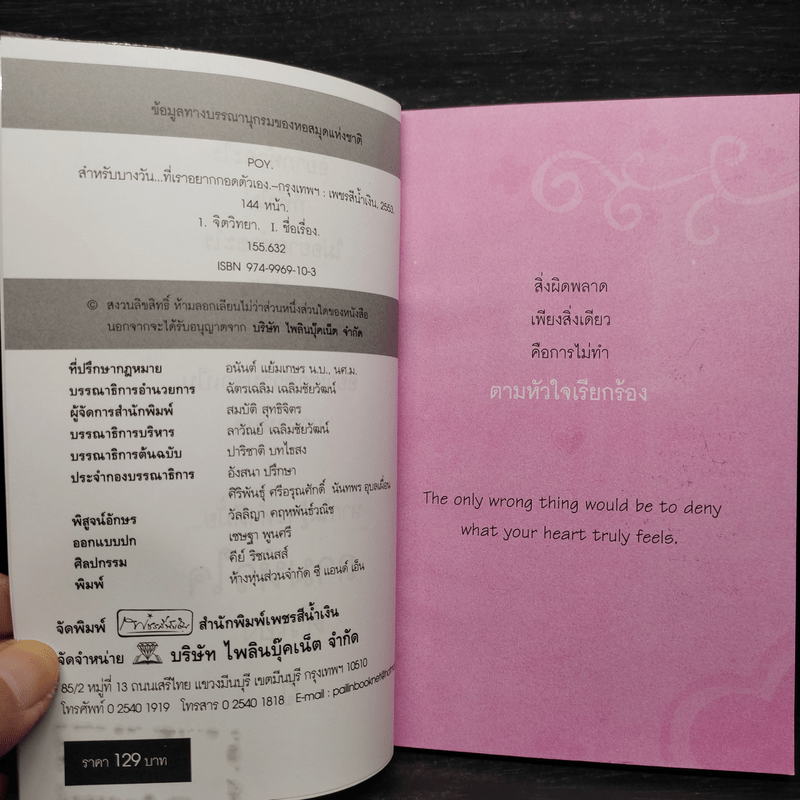 ข้อมูลทางบรรณานุกรมของหอสมุดแห่งชาติ
POY.
สำหรับบางวัน...ที่เราอยากกอดตัวเอง.–กรุงเทพฯ : เพชรสีน้ำเงิน, 2553.
144 หน้า.
1. จิตวิทยา. I. ชื่อเรื่อง.
155.632
ISBN 974-9969-10-3
© สงวนลิขสิทธิ์ ห้ามลอกเลียนไม่ว่าส่วนหนึ่งส่วนใดของหนังสือ
นอกจากจะได้รับอนุญาตจาก บริษัท ไพลินบุ๊คเน็ต จำกัด
ที่ปรึกษากฎหมาย อนันต์ แย้มเกษร น.บ., นศ.ม.
บรรณาธิการอำนวยการ ฉัตรเฉลิม เฉลิมชัยวัฒน์
ผู้จัดการสำนักพิมพ์ สมบัติ สุทธิจิตร
บรรณาธิการบริหาร ลาวัณย์ เฉลิมชัยวัฒน์
บรรณาธิการต้นฉบับ ปาริชาติ บทไธสง
ประจำกองบรรณาธิการ อังสนา ปรึกษา
ศิริพันธุ์ ศรีอรุณศักดิ์ นันทพร อุบลเผื่อน
พิสูจน์อักษร วัลลิญา คฤหพันธ์วณิช
ออกแบบปก เชษฐา พูนศรี
ศิลปกรรม คีย์ ริชเนสส์
พิมพ์ ห้างหุ้นส่วนจำกัด ซี แอนด์ เอ็น
จัดพิมพ์ สำนักพิมพ์เพชรสีน้ำเงิน
จัดจำหน่าย บริษัท ไพลินบุ๊คเน็ต จำกัด
85/2 หมู่ที่ 13 ถนนเสรีไทย แขวงมีนบุรี เขตมีนบุรี กรุงเทพฯ 10510
โทรศัพท์ 0 2540 1919 โทรสาร 0 2540 1818 E-mail :
ราคา 129 บาท
สิ่งผิดพลาด
เพียงสิ่งเดียว
คือการไม่ทำ
ตามหัวใจเรียกร้อง
The only wrong thing would be to deny
what your heart truly feels.